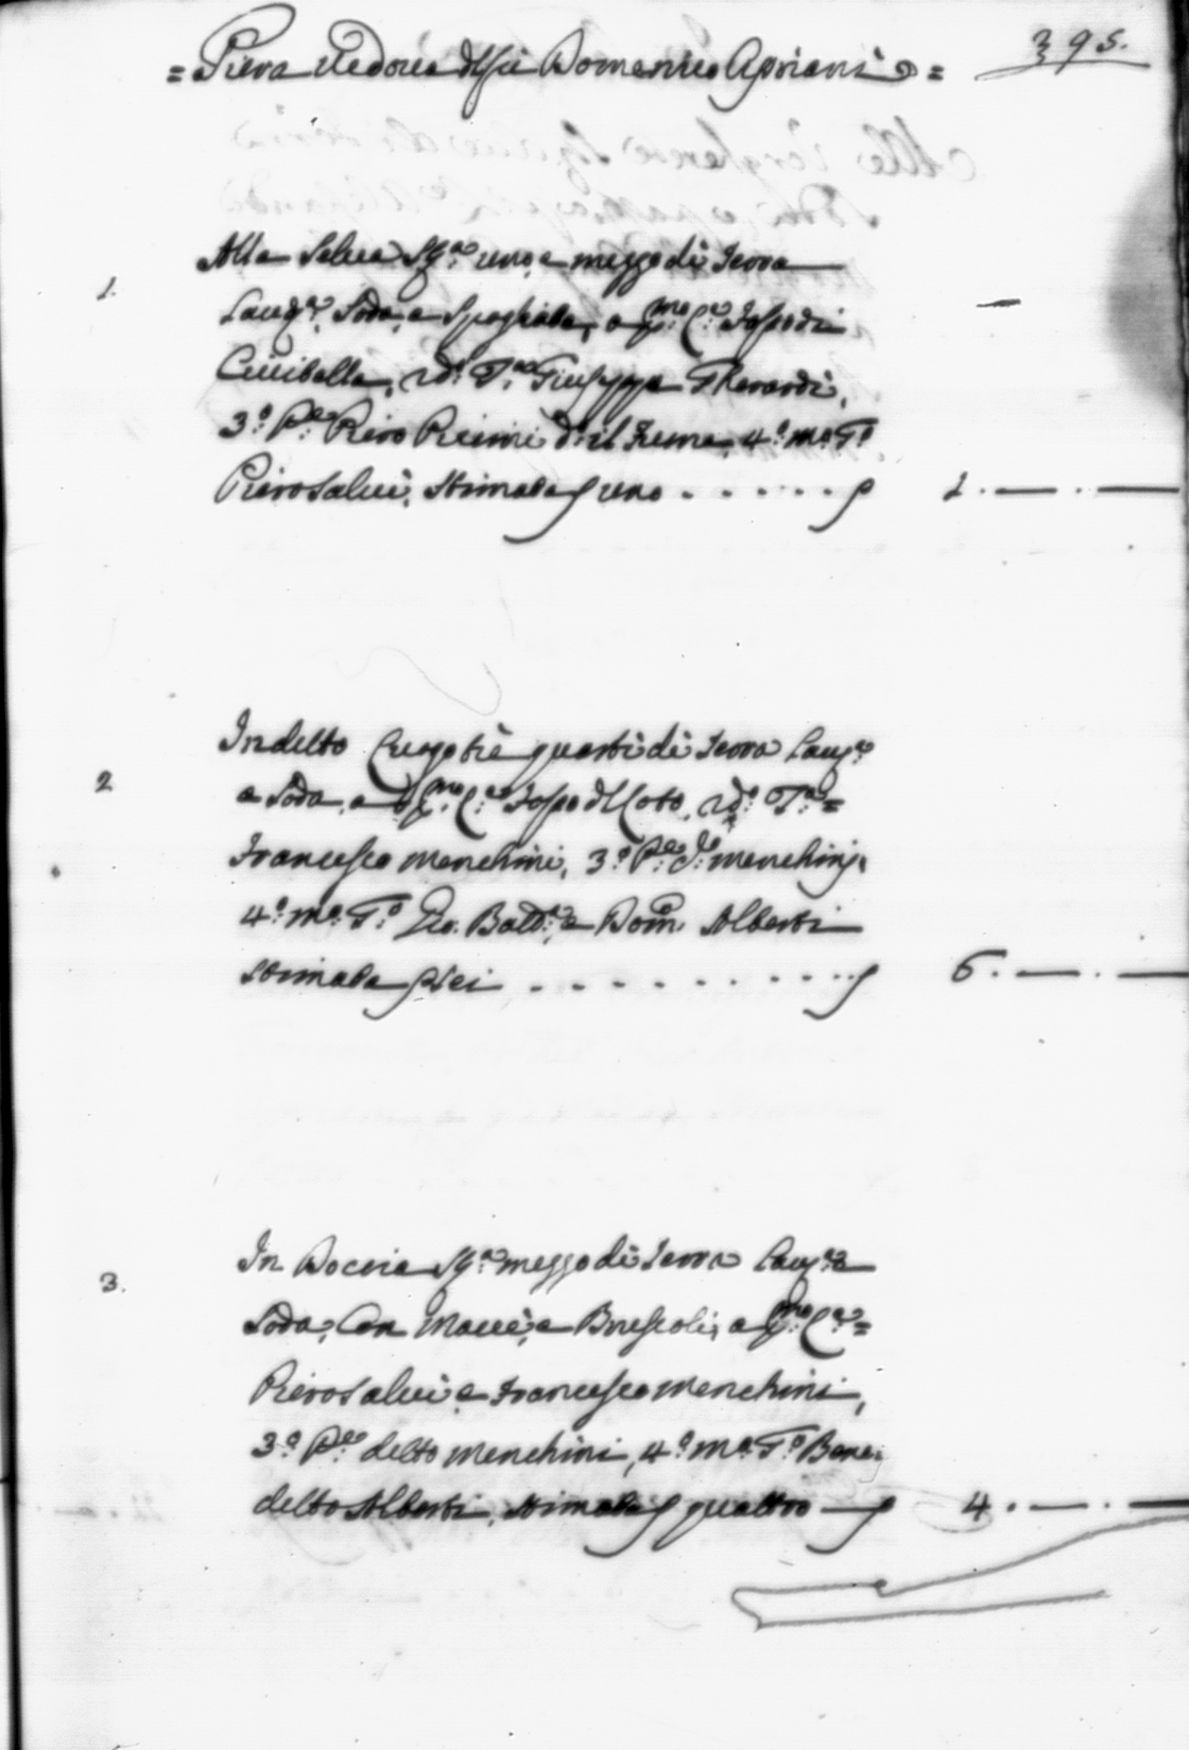 = Piera Vedova dl fù Domenico Apriani =
395.
1.
Alla Selva Sg.ra uno, e mezzo di Terra
Lauq.a, Soda, e Spogliata, a p.mo C.o Fosso di
Civibella, 2do T.no Giuseppe Gherardi,
3.o P.e Piero Picini d.o il Fiume, 4.o m.o T.o
Piero Salvi, Stimata uno . . . . . . 1. — . —
2
In detto Luogo trè quarti di Terra Lauq.a
e Soda, a p.mo C.o Fosso dl Coto, 2do T.no =
Francesco Menchini, 3.o P.e d.o Menchini,
4.o m.o T.o Gio. Batt.a, e Dom. Alberti
Stimata sei . . . . . . . . . . 6. — . —
3.
In Doccia Sg.ra mezzo di Terra Lauq.a e
Soda, Con Macie, e Bruscoli, a p.mo C.o =
Piero Salvi e Francesco Menchini,
3.o P.e detto Menchini, 4.o m.o T.o Bene,
detto Alberti, Stimata quattro — 4. — . —